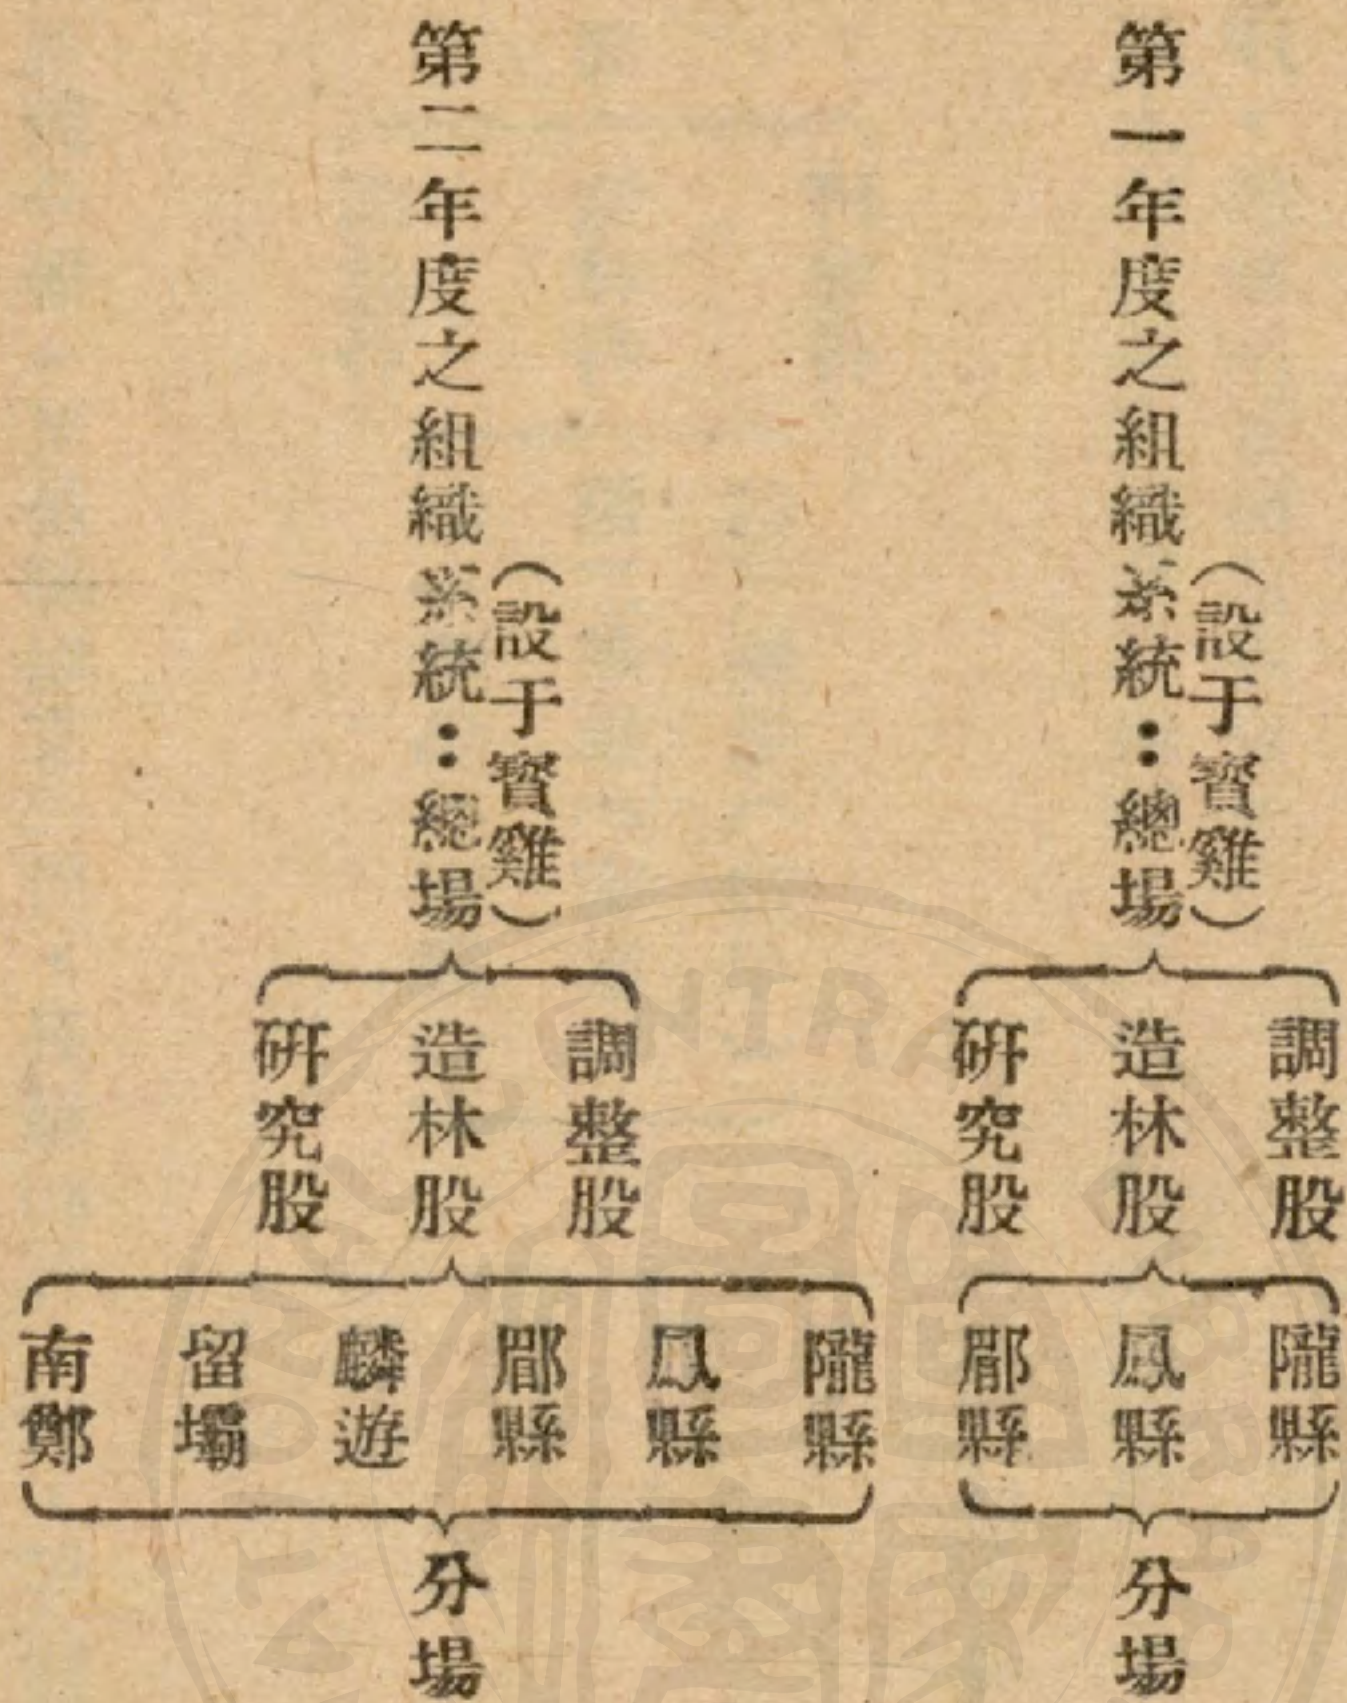 第一年度之組織系統：總場
（設于寶雞）
調整股
造林股
研究股
隴縣
鳳縣
郿縣
分場
第二年度之組織系統：總場
（設于寶雞）
調整股
造林股
研究股
隴縣
鳳縣
郿縣
麟遊
留壩
南鄭
分場